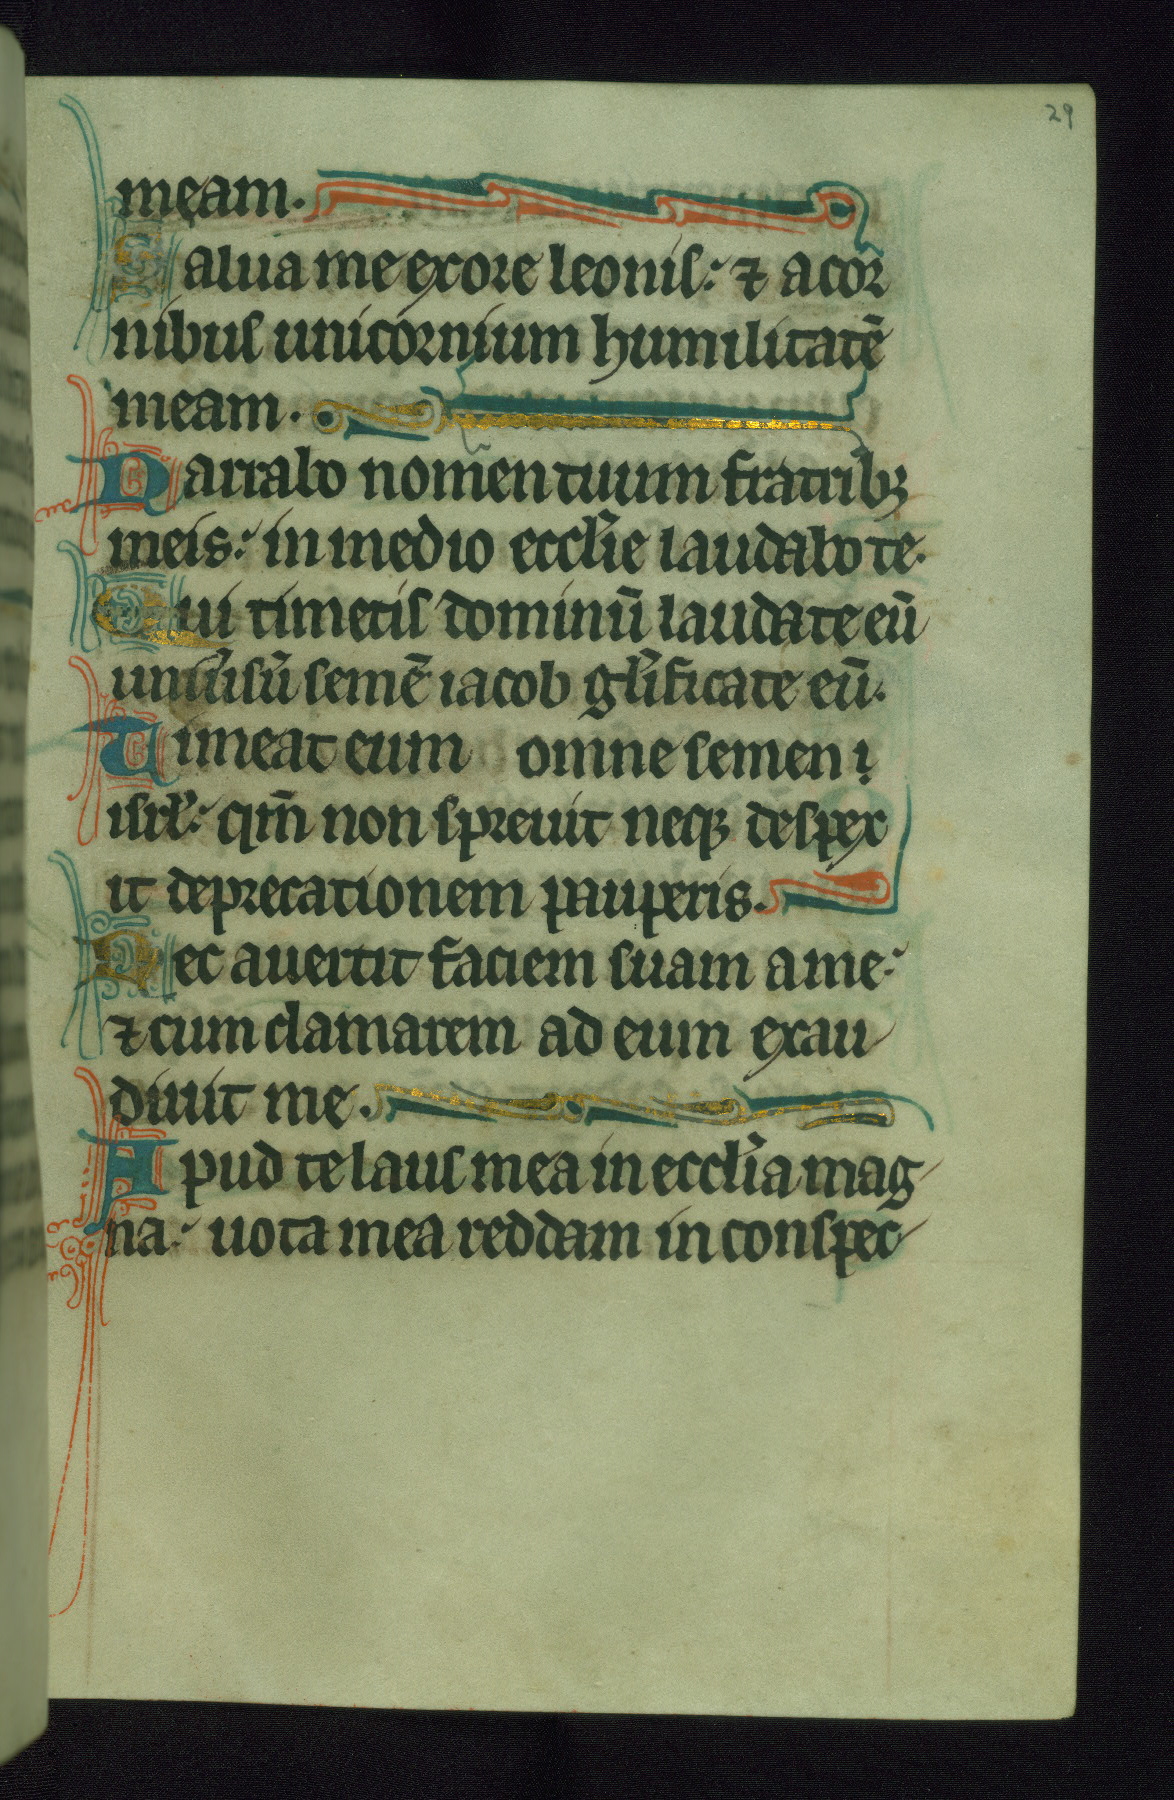 29
meam.
Salua me exore leonis: ⁊ acor
nibus unicornium humilitatē
meam.
Narrabo nomen tuum fratribꝫ
meis: in medio eccl'ie laudabo te.
Qui timetis dominū laudate eū
uniu'sū semē iacob gl'ificate eū.
Timeat eum omne semen i
isrl': qm̄ non spreuit neqꝫ despex
it deprecationem pauperis.
Nec auertit faciem suam a me:
⁊ cum clamarem ad eum exau
diuit me.
Apud te laus mea in eccl'ia mag
na: uota mea reddam in conspec